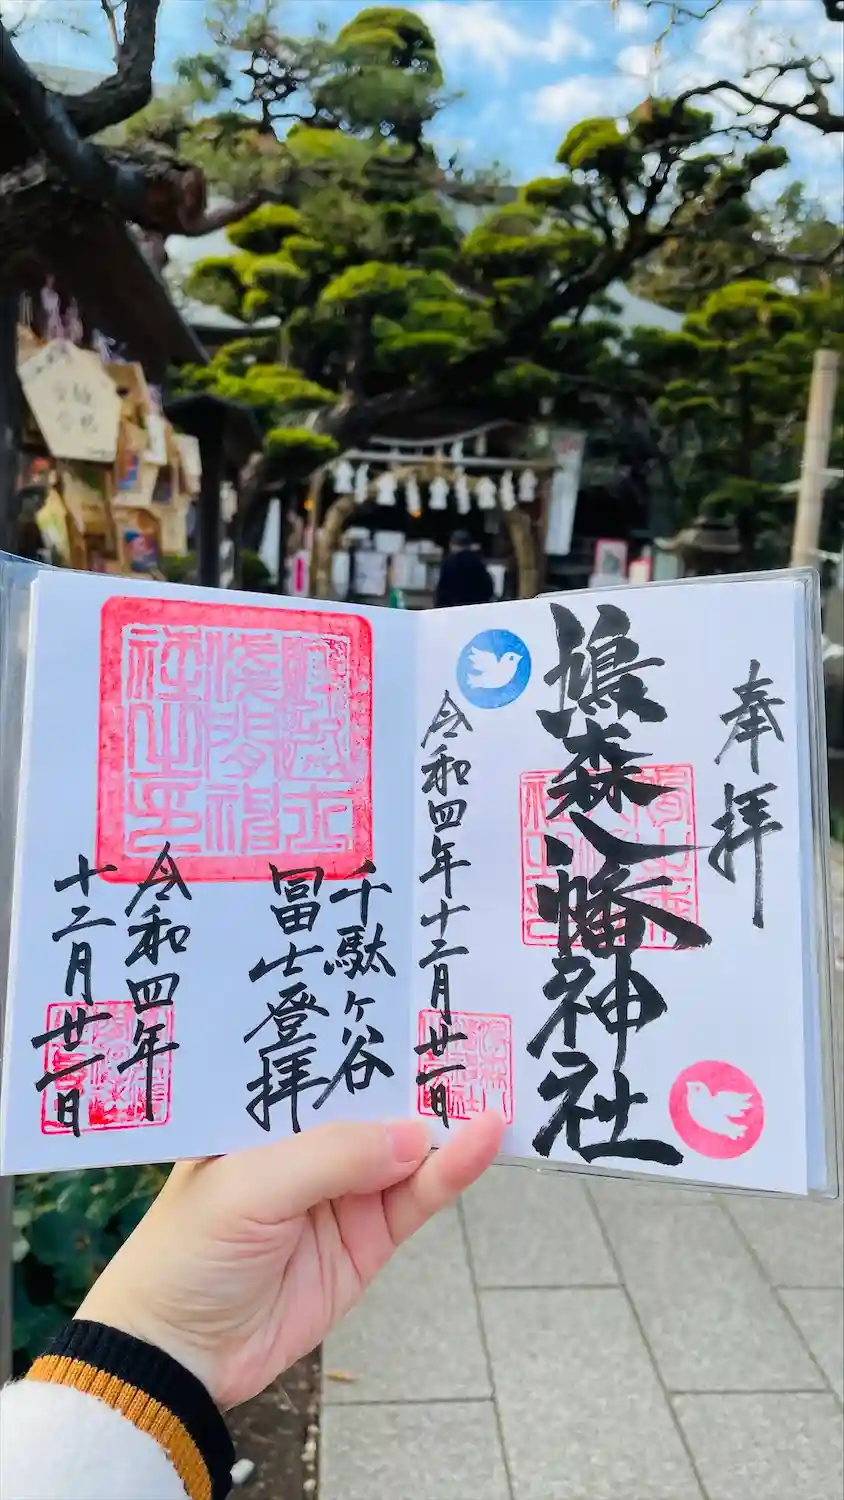 奉拝
鳩森八幡神社
令和四年十二月廿一日
千駄ヶ谷
冨士登拝
令和四年
十二月廿一日